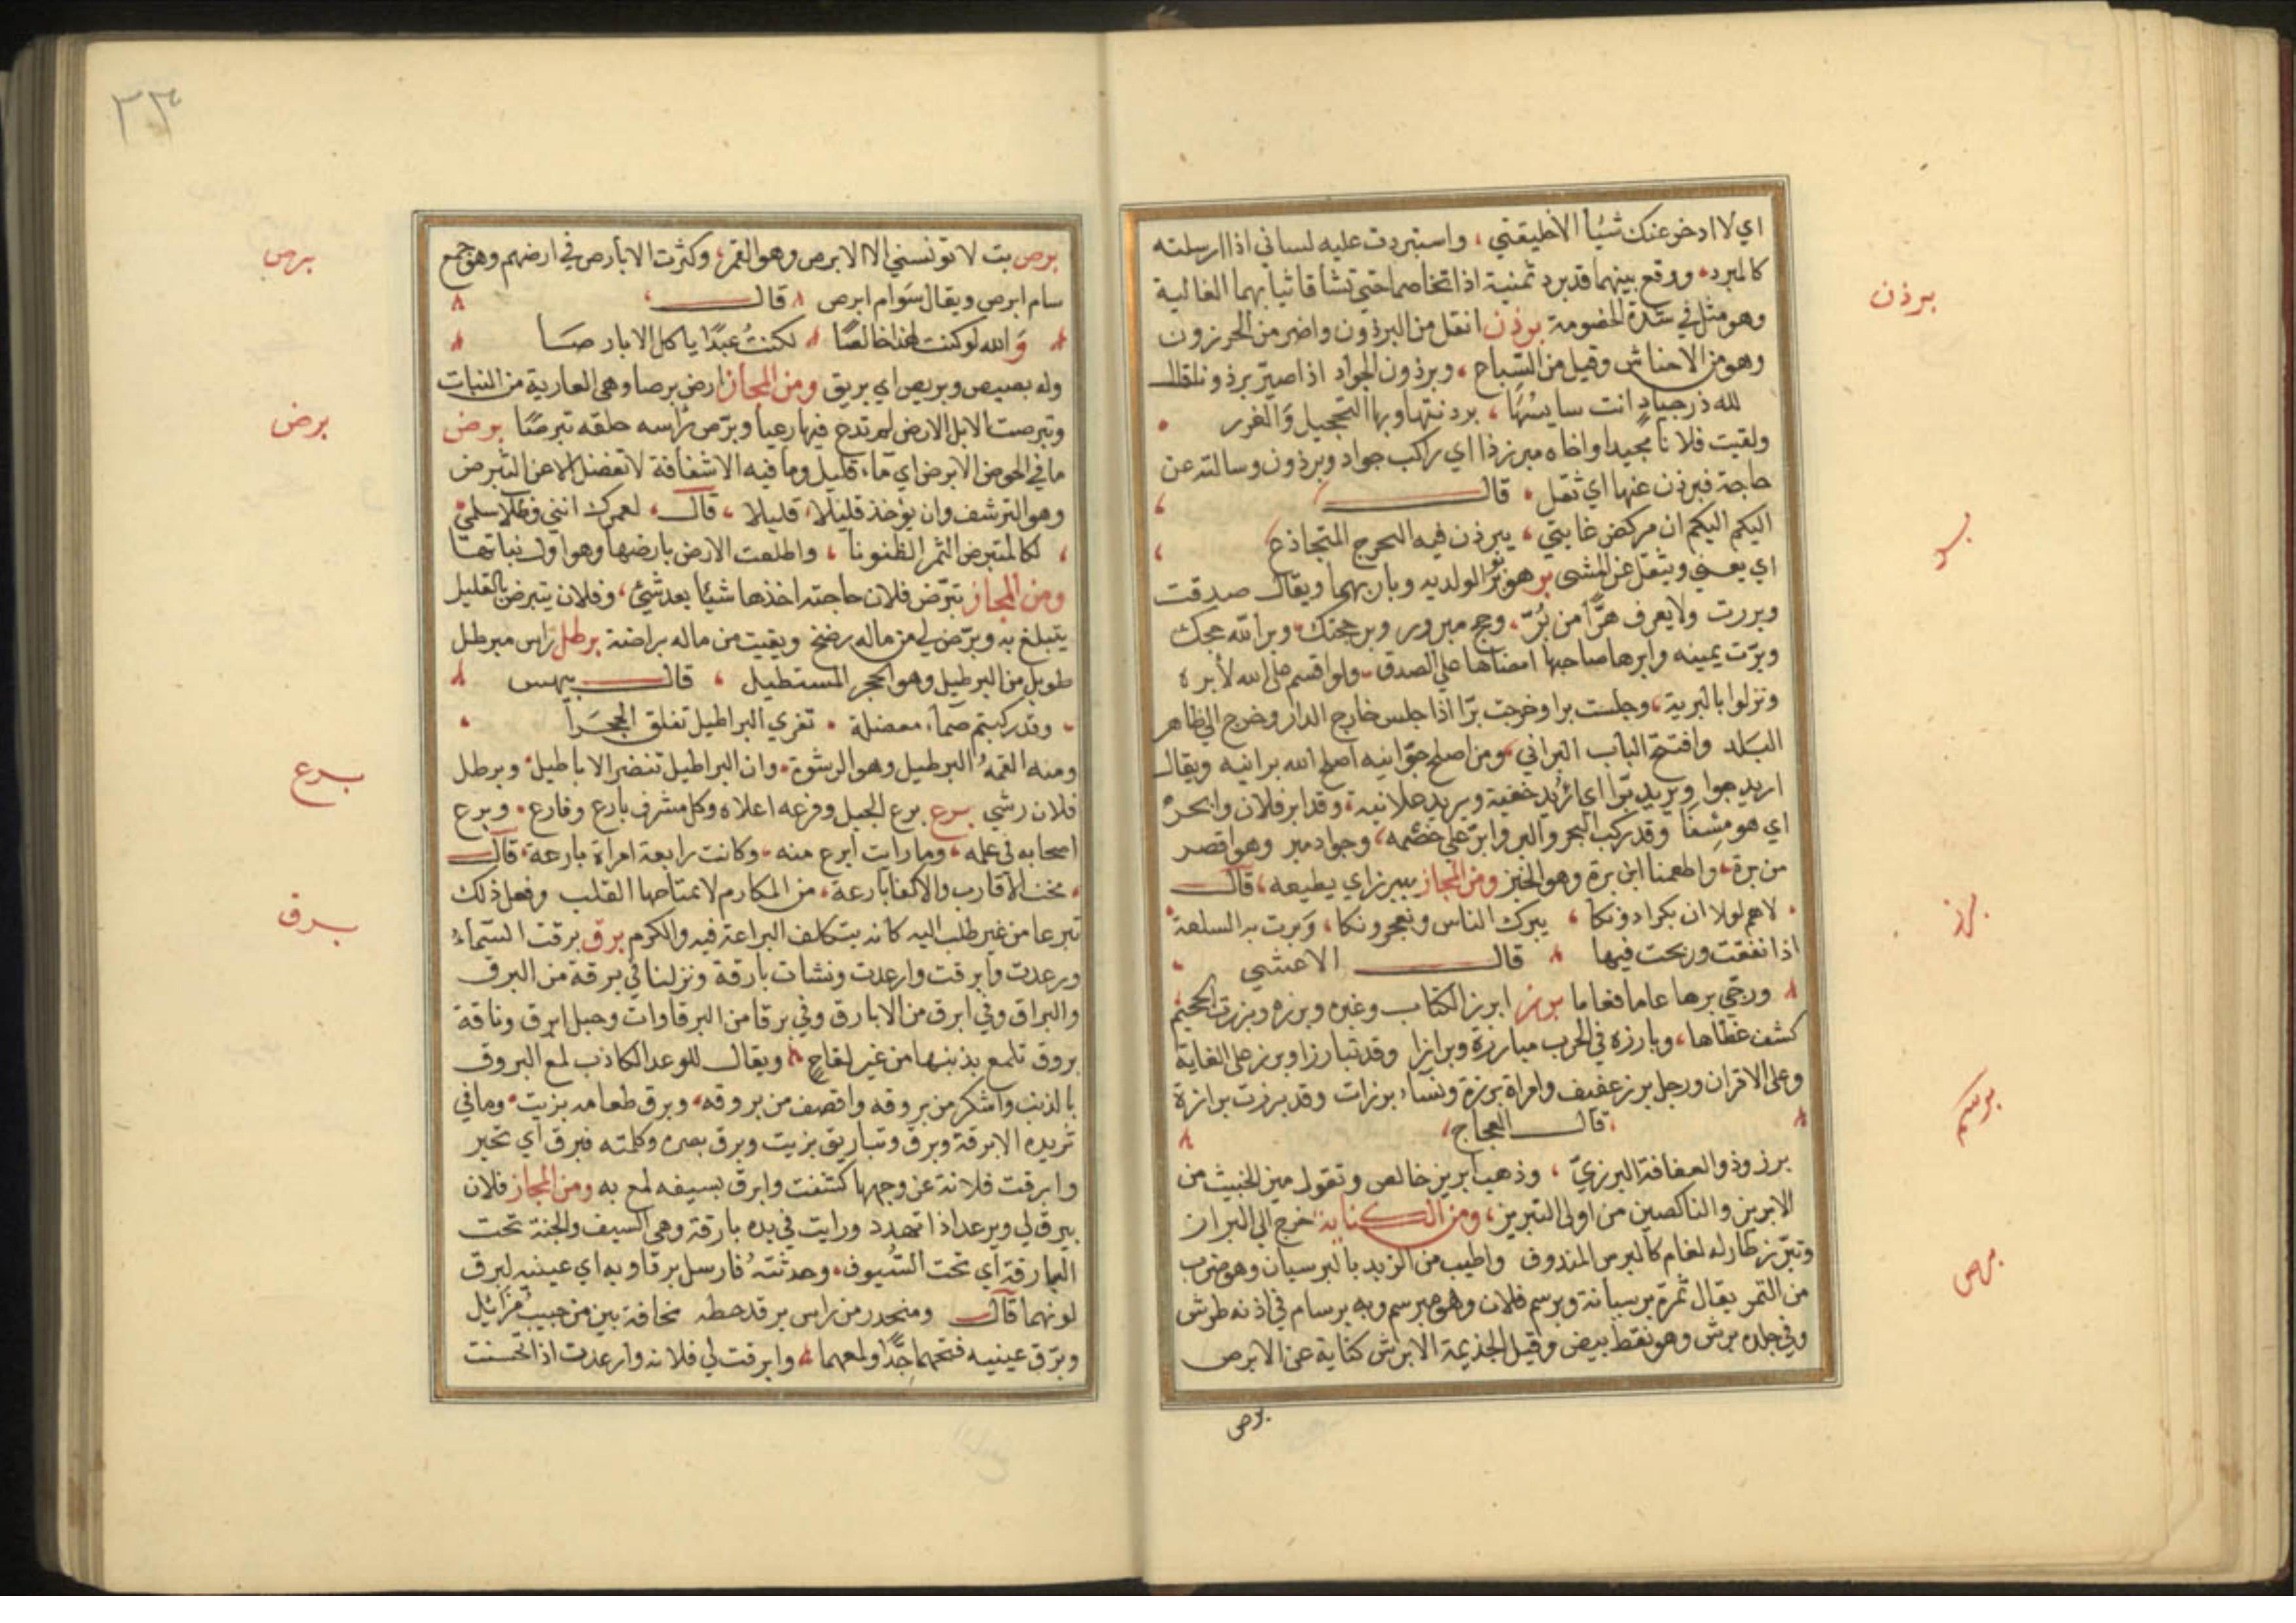 اي لا ادخر عنك شيأ الا خليقتي، واستبردت عليه لساني اذا ارسلته
كالمبرد، ووقع بينهما قد برد ثمنية اذا تخاصما حتي تشاقا ثيابهما الغالية
وهو مثل في شدة الخصومة برذن اثقل من البرذون واضر من الحرزون
وهو من الاحناش وقيل من السباح، وبرذون الجواد اذا صير برذونا قال
لله در جياد انت سايسها، برذنتها وبها التحجيل والغرر
ولقيت فلانا مجيدا واخاه مبرزذا اي راكب جواد وبرذون وسالته عن
حاجة فبرذن عنها اي ثقل، قال
اليكم اليكم ان مركض غايتي، يبرذن فيه البحرج المتجاذع
اي يعيي ويثقل عن المشي بر هو بر الولديه وبار بهما ويقال صدقت
وبررت ولا يعرف هرّا من برّ، وحج مبرور وبر حجتك، وبر الله حجك
وبرّت يمينه وابرها صاحبها امضاها علي الصدق، ولو اقسم علي الله لأبره
ونزلوا بالبرية، وجلست برا وخرجت برّا اذا جلس خارج الدار وخرج الي ظاهر
البلد وافتتح الباب البراني، ومن اصلح جوانيه اصلح الله برانيه ويقال
اريد جوا ويريد برّا اي اريد خفية ويريد علانية، وقد ابر فلان وابحر
اي هو مسفا وقد ركب البحر والبر وابر علي خصمه، وجواد مبر وهو اقصر
من برة، واطعمنا ابن برة وهو الخبز ومن المجاز يبرزاي يطيعه، قال
لاهم لولا ان بكرا دونكا، يبرك الناس ويفجرونكا، وبرت به السلعة
اذا نفقت وربحت فيها قال الاعشي
ورجي برها عاما فعاما برز ابرز الكتاب وغيره وبرزه وبرزت الجحيم
كشف غطاها، وبارزه في الحرب مبارزة وبرازا وقد تبارزا وبرز علي الغاية
وعلي الاقران ورجل برز عفيف وامراة برزة ونساء برزات وقد برزت برازة
قال العجاج
برز وذو العفافة البرزيّ، وذهب ابريز خالص وتقول ميز الخبيث من
الابريز والناكصين من اولي التبريز، ومن الكناية خرج الي البراز
وتبرّز طار له لغام كالبرس المندوف واطيب من الزبد بالبرسيان وهو ضرب
من التمر يقال تمرة برسيانة وبرسم فلان وهو مبرسم وبه برسام في اذنه طرش
وفي جلده برش وهو نقط بيض وقيل الجذيمة الابرش كناية عن الابرص
برص
برذن
بر
برز
برسم
برص
٢٣
برص بت لا تونسني الا الابرص وهو القمر، وكثرت الابارص في ارضهم وهو جمع
سام ابرص ويقال سوام ابرص قال
والله لو كنت لهذا خالصا لكنت عبدا ياكل الابارصا
وله بصيص وبريص اي بريق ومن المجاز ارض برصا وهي العارية من النبات
وتبرصت الابل الارض لم تدع فيها رعيا وبرّص راسه حلقه تبرصًا برض
ما في الحوض الا برض اي ماء قليل وما فيه الا شفافة لا تفضل الا عن التبرض
وهو الترشف وان يؤخذ قليلا قليلا، قال، لعمرك انني وطلاب سلمي
لكالمتبرض الثمر الظنونا، واطلعت الارض بارضها وهو اول نباتها
ومن المجاز تبرّض فلان حاجته اخذها شيئا بعد شيئ، وفلان يتبرض بالقليل
يتبلغ به وبرّض لي من ماله رضخ وبقيت من ماله براضة برطل راس مبرطل
طويل من البرطيل وهو الحجر المستطيل، قال بيهس
وقد ركبتم صماء معضلة، تفري البراطيل تفلق الحجرا
ومنه القمه البرطيل وهو الرشوة، وان البراطيل تنضر الاباطيل، وبرطل
فلان رشي برع برع الجبل وفرعه اعلاه وكل مشرف بارع وفارع، وبرع
اصحابه في علمه، وما رايت ابرع منه، وكانت رابعة امراة بارعة، قال
تخت الاقارب والاكفا بارعة، من المكارم لا تمتاحها القلب وفعل ذلك
تبرعا من غير طلب اليه كانه يتكلف البراعة فيه والكرم برق برقت السماء
ورعدت وابرقت وارعدت ونشات بارقة ونزلنا في برقة من البرق
والبراق وفي ابرق من الابارق وفي برقا من البرقاوات وجبل ابرق وناقة
بروق تلمع بذنبها من غير لقاح ويقال للوعد الكاذب لمع البروق
بالذنب واشكر من بروقه واقصف من بروقه، وبرق طعامه بزيت، وما في
ثريده الا برقة وبرق وتباريق بزيت وبرق بصره وكلمته فبرق اي تحير
وابرقت فلانة عن وجهها كشفت وابرق بسيفه لمع به ومن المجاز فلان
يبرق لي ويرعد اذا تهدد ورايت في يده بارقة وهي السيف والجنة تحت
البارقة اي تحت السيوف، وحدثته فارسل برقاويه اي عينيه لبرق
لونهما قال ومنحدر من راس برقا حطه مخافة بين من حبيب مزايل
وبرّق عينيه فتحهما جدّا ولمعهما، وابرقت لي فلانه وارعدت اذا تحسنت
برص
برض
برع
برق